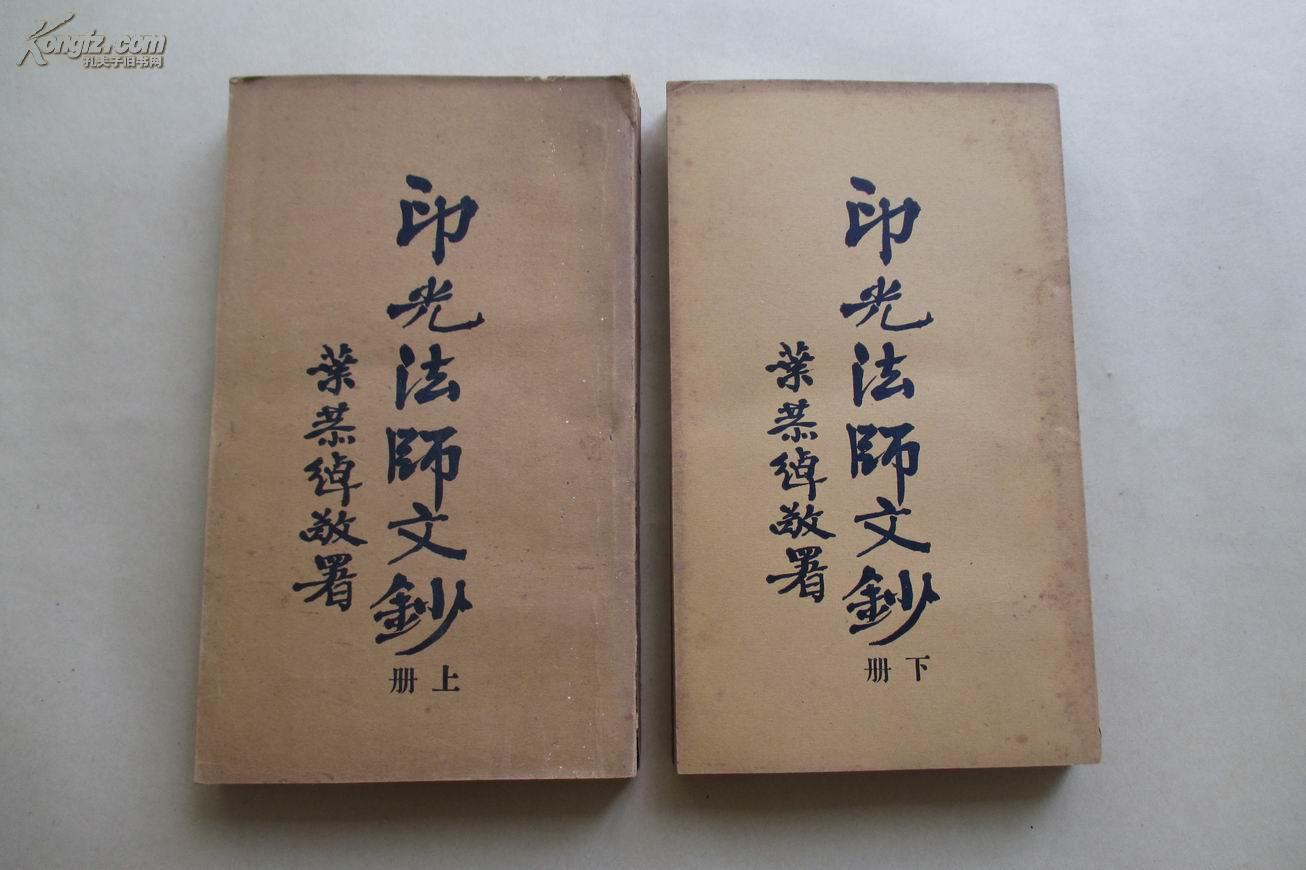 Kongfz.com
孔夫子旧书网
印光法師文鈔
葉恭綽敬署
上册
印光法師文鈔
葉恭綽敬署
下册